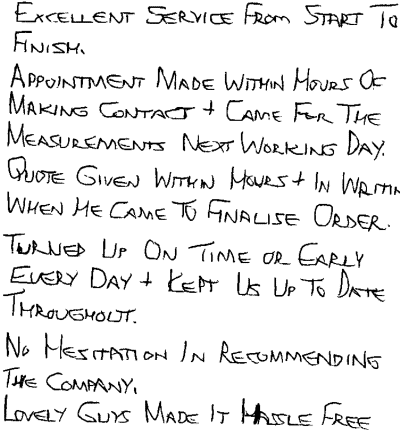 EXCELLENT SERVICE FROM START TO
FINISH.
APPOINTMENT MADE WITHIN HOURS OF
MAKING CONTACT + CAME FOR THE
MEASUREMENTS NEXT WORKING DAY.
QUOTE GIVEN WITHIN HOURS + IN WRITIN
WHEN HE CAME TO FINALISE ORDER.
TURNED UP ON TIME OR EARLY
EVERY DAY + KEPT US UP TO DATE
THROUGHOUT.
NO HESITATION IN RECOMMENDING
THE COMPANY.
LOVELY GUYS MADE IT HASSLE FREE